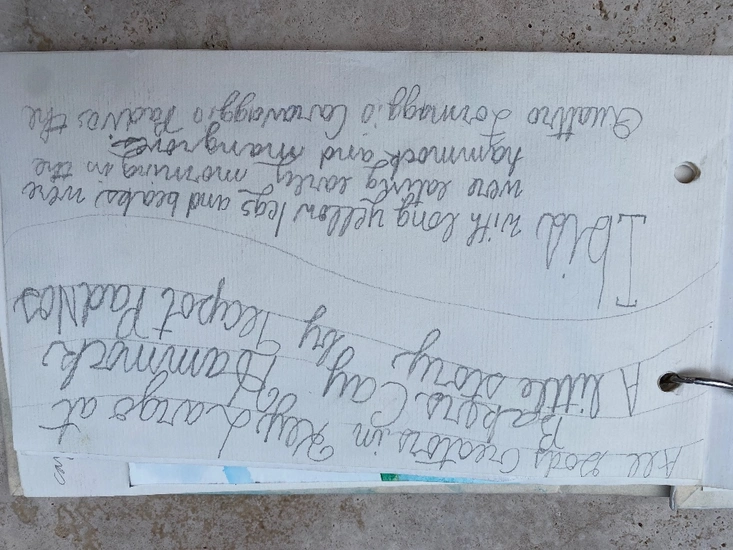 All Gods Creators in Key Largo at
Bakers Cay Hammock
A little story, by Teapot PadNos
Ibid with long yellow legs and beaks, were
were eating early morning in the
hammock and mangroves.
Quattro Formaggio Caravaggio PadNos the